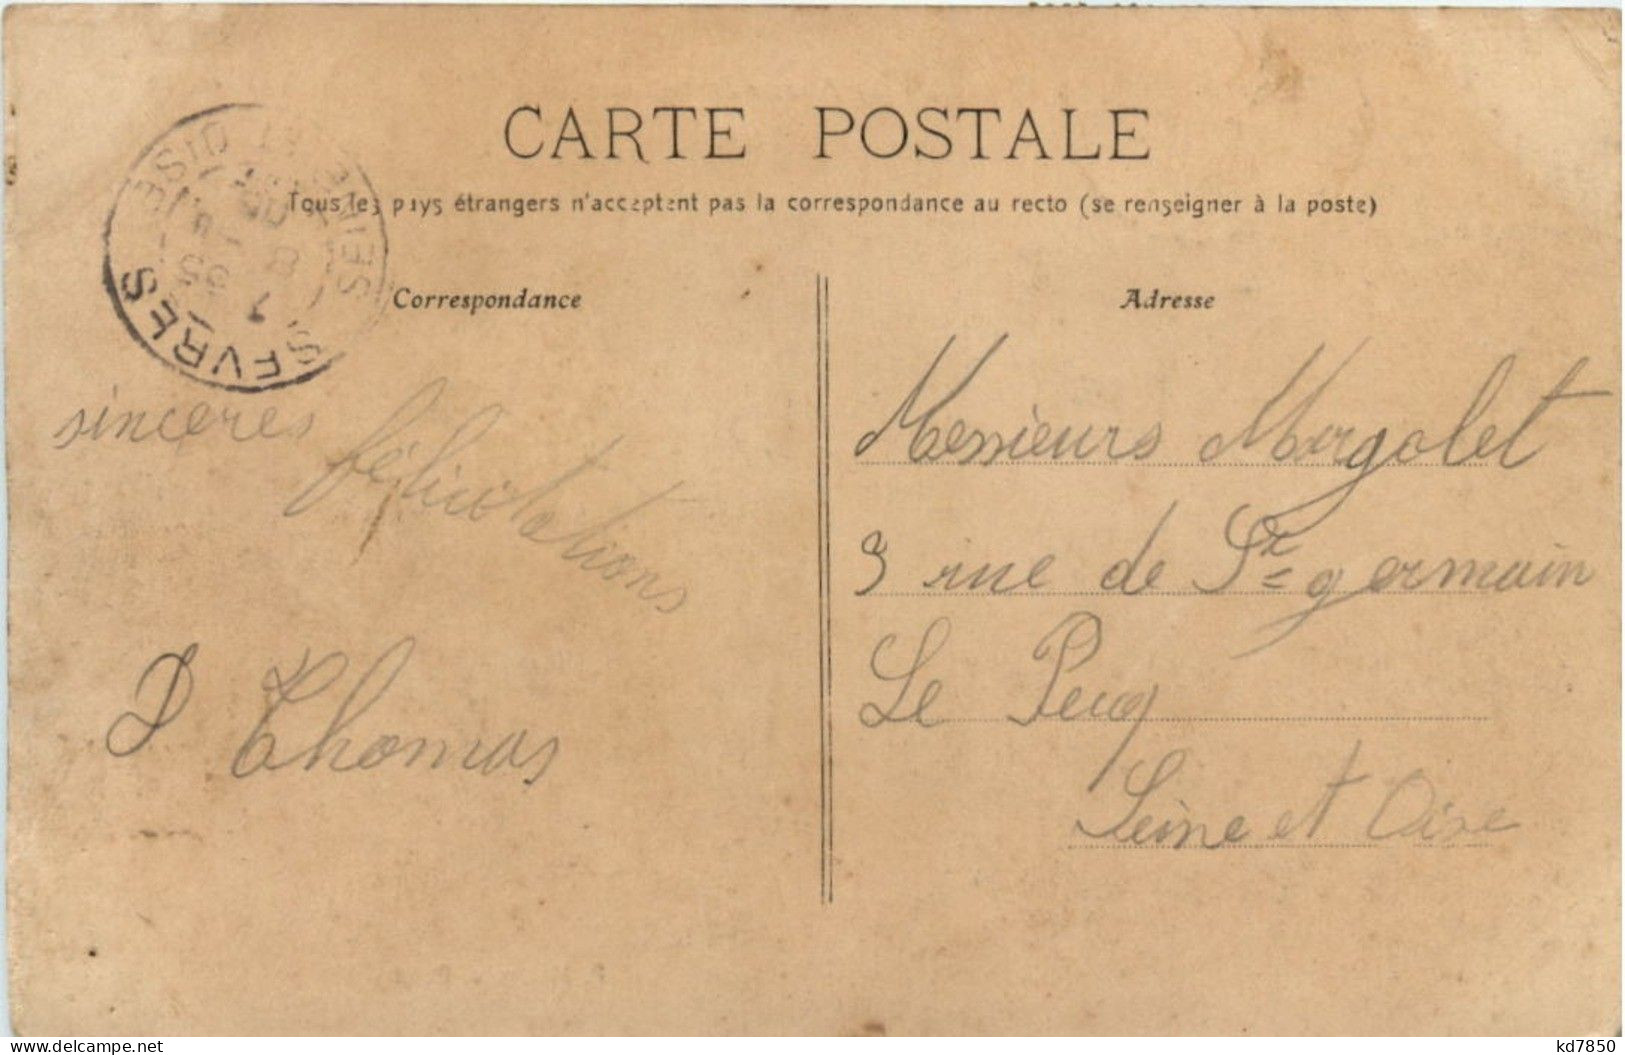 CARTE POSTALE
Tous les pays étrangers n'acceptent pas la correspondance au recto (se renseigner à la poste)
SEINE ET OISE
SEVRES
Correspondance
sinceres félicitations
D Thomas
Adresse
Messieurs Morgolet
3 rue de St= germain
Le Pecq
Seine et Oise
delcampe.net
kd7850